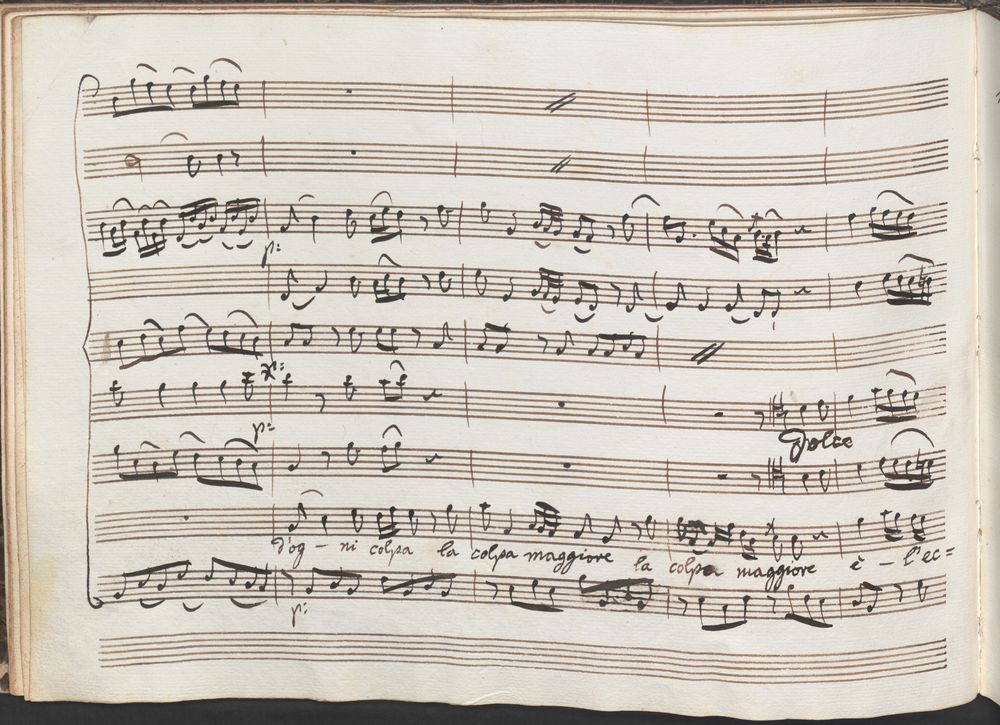 p:
p:
Dolce
d'og - ni colpa la colpa maggiore la colpa maggiore è - l'ec=
p: